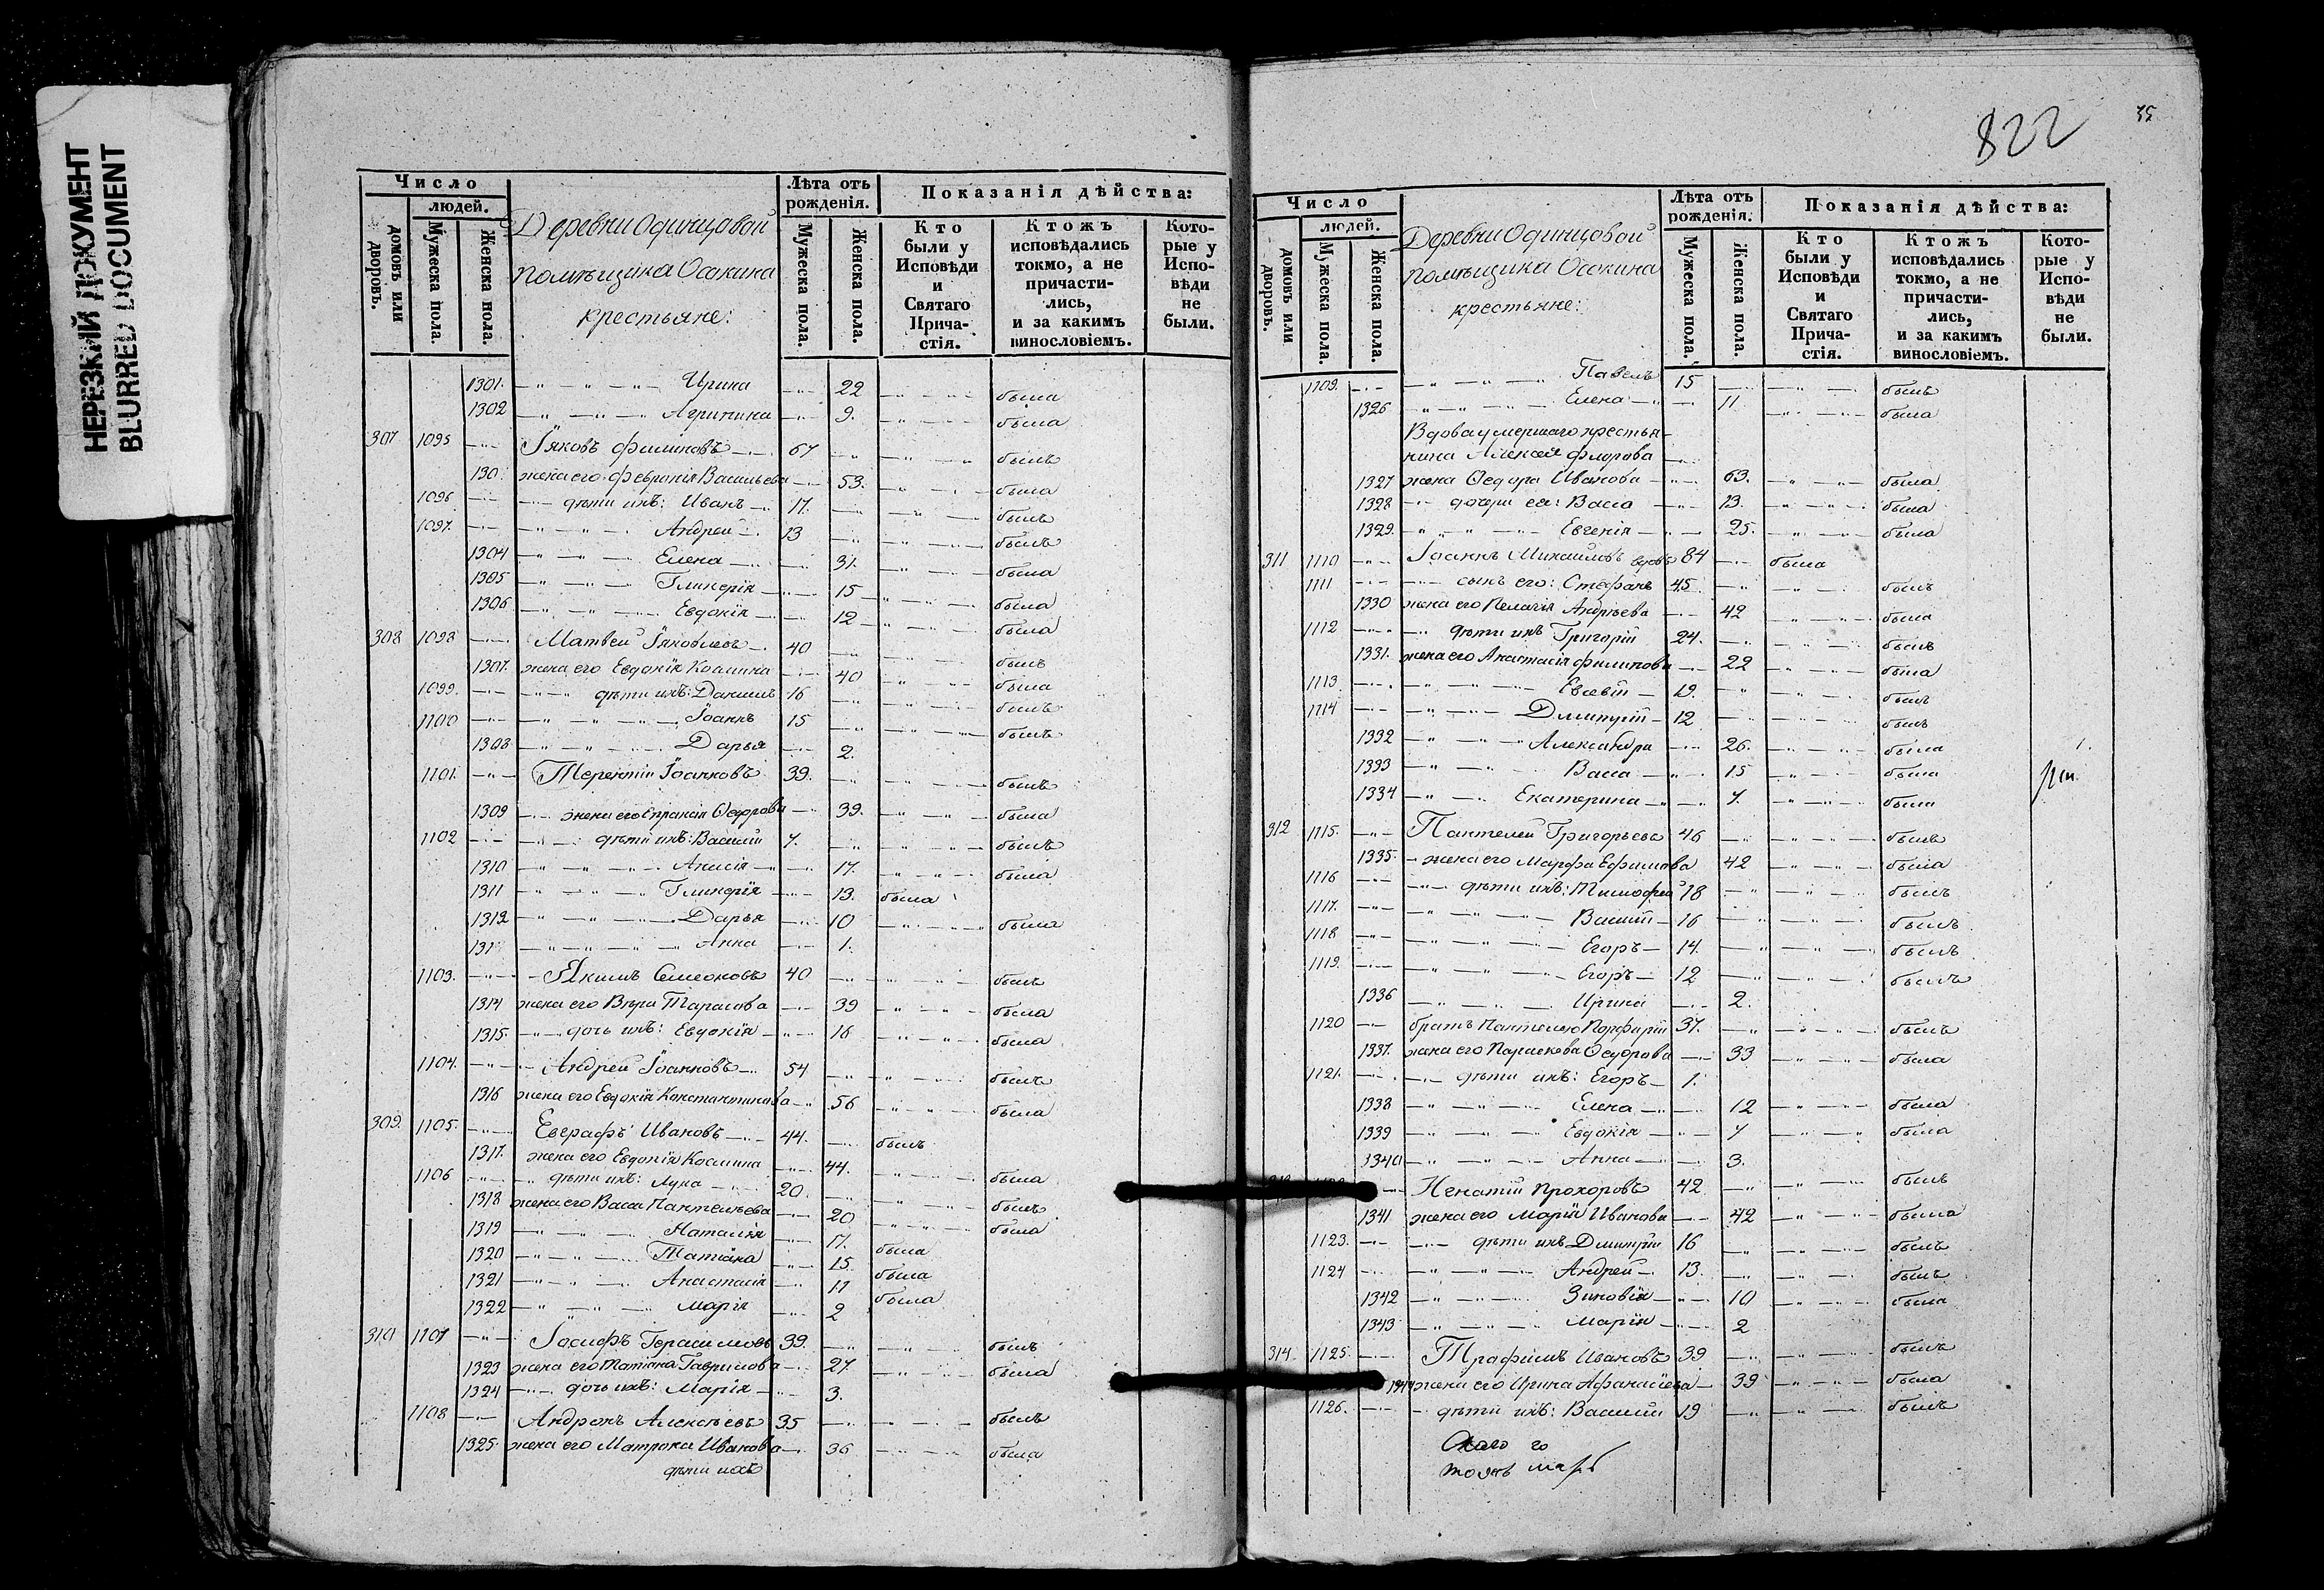 НЕРЕЗКИЙ ДОКУМЕНТ
BLURRED DOCUMENT
Число
людей.
домовъ или дворовъ.
Мужеска пола.
Женска пола.
Деревни Одинцовой
помѣщика Осокина
крестьяне:
Лѣта отъ рожденія.
Мужеска пола.
Женска пола.
Показанія дѣйства:
Кто были у Исповѣди и Святаго Прича-стія.
Ктожъ исповѣдались токмо, а не причасти-лись, и за какимъ винословіемъ.
Кото-рые у Испо-вѣди не были.
1301. Ирина 22 была
1302 Агрипина 9. была
307 1095 Іяковъ Филиповъ 67 былъ
130 жена его Февронія Васильева 53. была
1096 дѣти ихъ: Иванъ 17. былъ
1097. Андрей 13 былъ
1304 Елена 31. была
1305 Гликерія 15 была
1306 Евдокія 12 была
308 1098 Матвей Іяковлевъ 40 былъ
1307. жена его Евдокія Космина 40 была
1099. дѣти ихъ: Даниилъ 16 былъ
1100 Іоаннъ 15 былъ
1308 Дарья 2.
1101. Терентій Іоанновъ 39. былъ
1309 жена его Ѳедорова 39. была
1102 дѣти ихъ: Василій 7. былъ
1310 Анисія 17. была
1311 Гликерія 13. была
1312 Дарья 10 была
131 Анна 1.
1103. Якимъ Семеоновъ 40 былъ
1314 жена его Вѣра Тарасова 39 была
1315. дочь ихъ: Евдокія 16 была
1104. Андрей Іоанновъ 54 былъ
1316 жена его Евдокія Константинова 56 была
309. 1105. Евграфъ Ивановъ 44. былъ
1317. жена его Евдокія Космина 44. была
1106 дѣти ихъ: Лука 20. былъ
1318 жена его Васса Пантелѣева 20 была
1319 Наталія 17. была
1320 Татіана 15. была
1321 Анастасія 11 была
1322 Марія 2
310 1107 Іосифъ Герасимовъ 39. былъ
1323 жена его Татіана Гаврилова 27. была
1324 дочь ихъ: Марія 3.
1108 Андронъ Алексѣевъ 35 былъ
1325. жена его Матрона Иванова 36 была
дѣти ихъ
822
Число
людей.
домовъ или дворовъ.
Мужеска пола.
Женска пола.
Деревни Одинцовой
помѣщика Осокина
крестьяне:
Лѣта отъ рожденія.
Мужеска пола.
Женска пола.
Показанія дѣйства:
Кто были у Исповѣди и Святаго Прича-стія.
Ктожъ исповѣдались токмо, а не причасти-лись, и за какимъ винословіемъ.
Кото-рые у Испо-вѣди не были.
1109. Павелъ 15 былъ
1326 Елена 11 была
Вдова умершаго крестья-
нина Алексея Флорова
1327 жена Ѳедора Иванова 63. была
1328 дочери ея: Васса 13. была
1329. Евгенія 25. была
311 1110 Іоаннъ Михаиловъ вдовъ 84 была
1111 сынъ его: Стефанъ 45 былъ
1330 жена его Пелагія Андрѣева 42 была
1112 дѣти ихъ Григорій 24. былъ
1331. жена его Анастасія Филипова 22 была
1113 Евсевій 19. былъ
1114 Дмитрій 12 былъ
1332 Александра 26. была
1333 Васса 15 была
1334 Екатерина 7. была
312 1115. Пантелей Григорьевъ 46 былъ
1335. жена его Марфа Ефимова 42 была
1116 дѣти ихъ: Тимофей 18 былъ
1117. Василій 16 былъ
1118 Егоръ 14. былъ
1119. Егоръ 12 былъ
1336 Ирина 2.
1120 братъ Пантелею Порфирій 37. былъ
1337. жена его Параскева Ѳедорова 33 была
1121. дѣти ихъ: Егоръ 1.
1338 Елена 12 была
1339 Евдокія 7 была
1340 Анна 3.
Игнатій Прохоровъ 42 былъ
1341 жена его Марія Иванова 42 была
1123. дѣти ихъ Дмитрій 16 былъ
1124 Андрей 13. былъ
1342 Зиновія 10 была
1343 Марія 2
314. 1125. Трофимъ Ивановъ 39 былъ
жена его Ирина Афанасіева 39 была
1126. дѣти ихъ: Василій 19 былъ